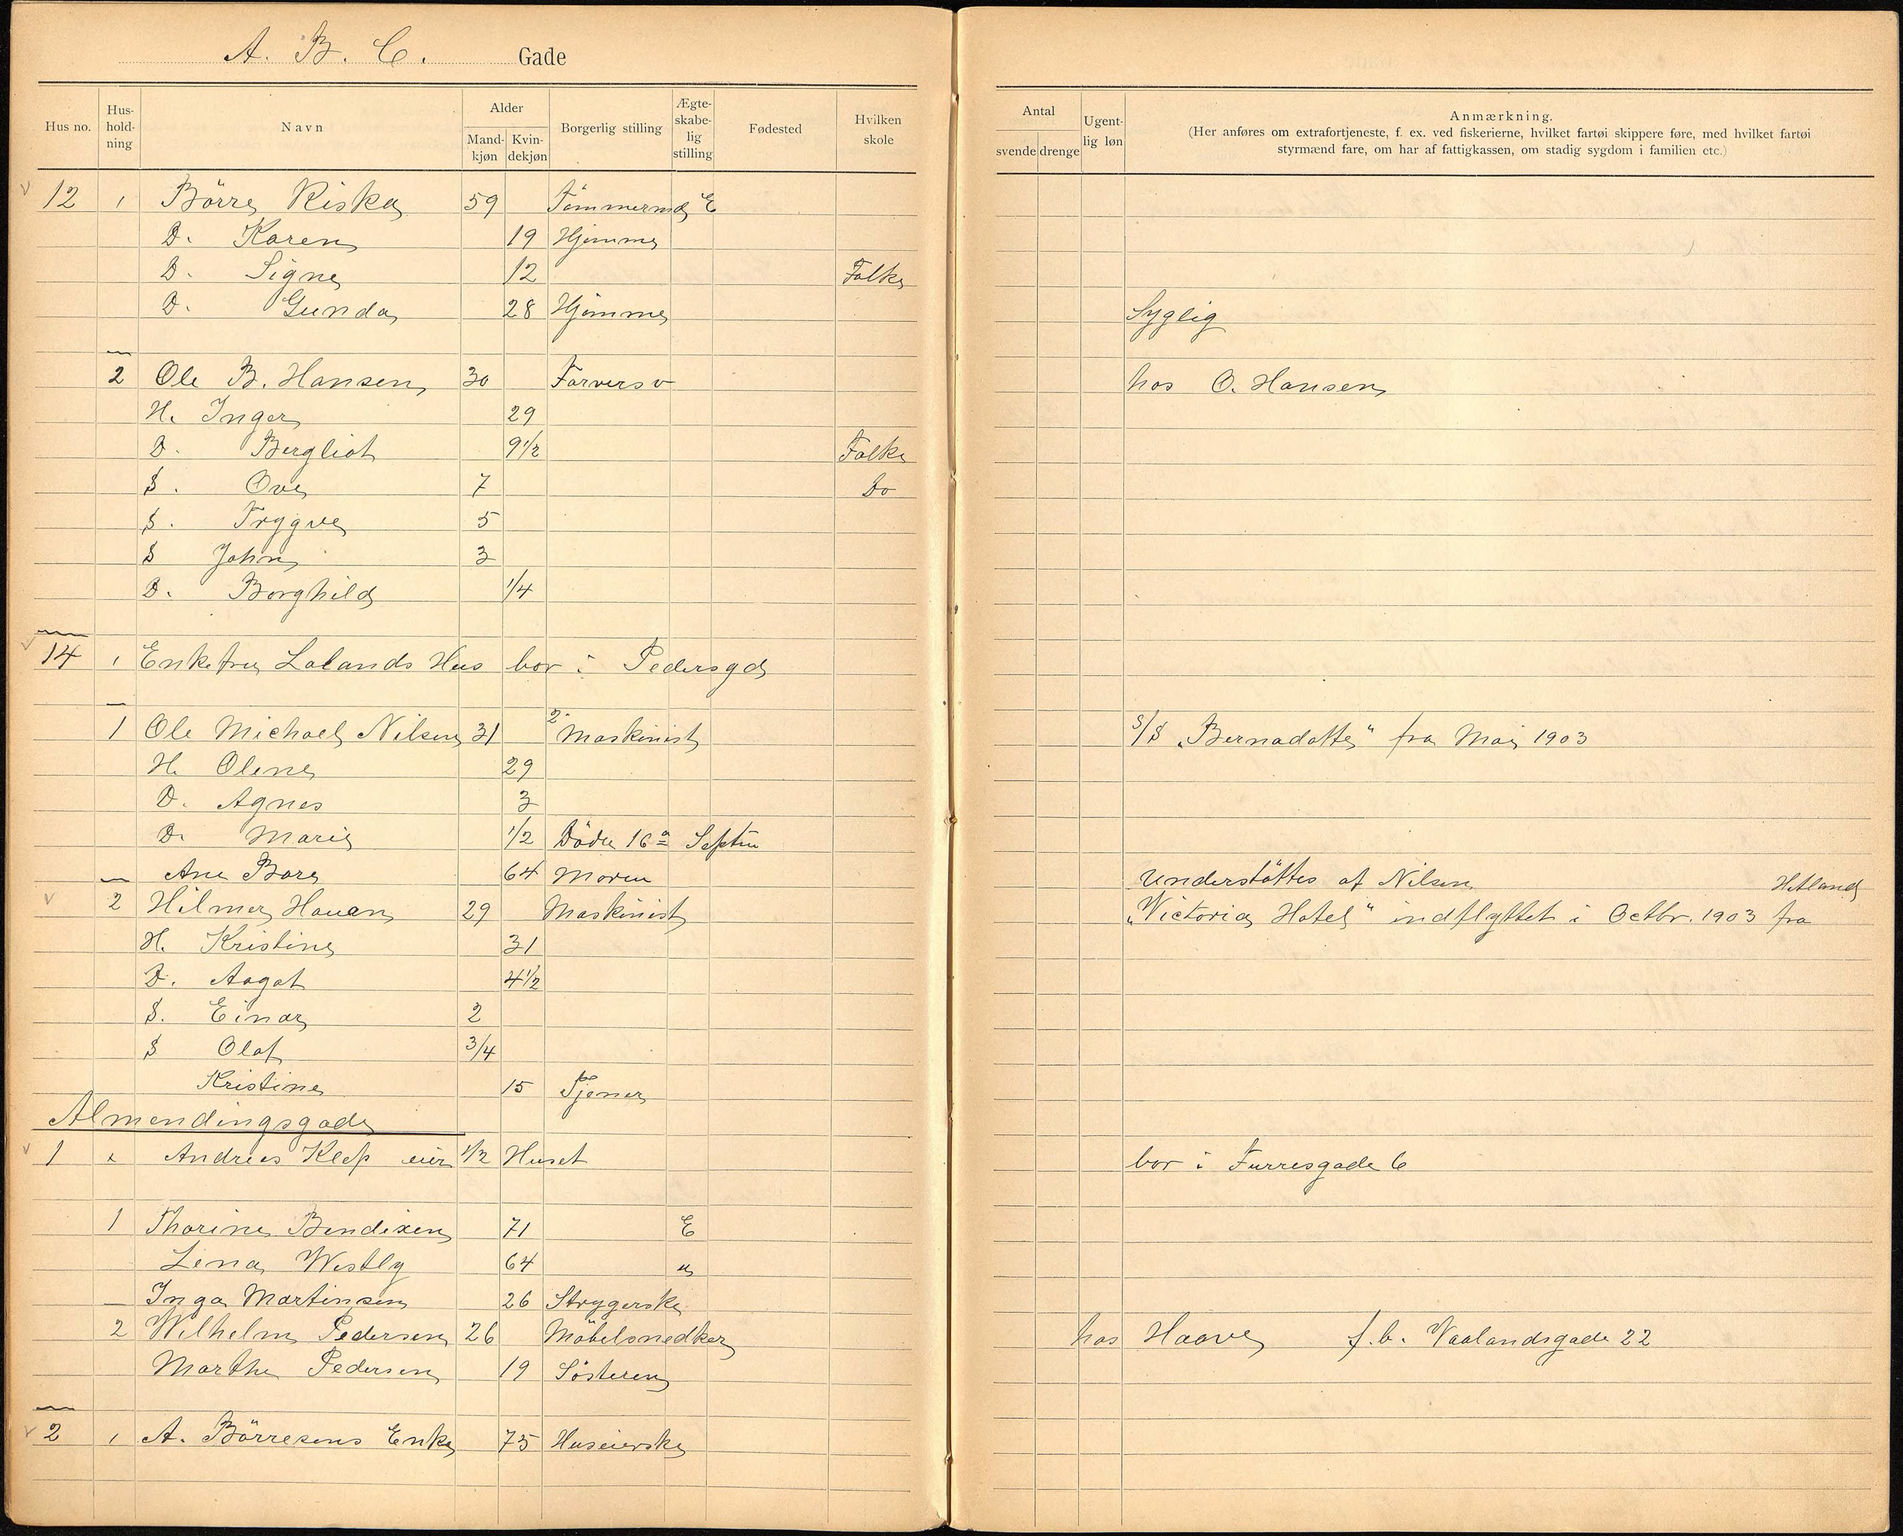 A. B. C. Gade
Hus no. Hus-hold-ning Navn Alder Mand-kjøn Kvin-dekjøn Borgerlig stilling Ægte-skabe-lig stilling Fødested Hvilken skole
Antal svende drenge Ugent-lig løn Anmærkning.
(Her anføres om extrafortjeneste, f. ex. ved fiskerierne, hvilket fartøi skippere føre, med hvilket fartøi
styrmænd fare, om har af fattigkassen, om stadig sygdom i familien etc.)
12 1 Börre Riska 59 Tömmermd E
D. Karen 19 Hjemme
D. Signe 12 Folke
D. Gunda 28 Hjemme Syglig
2 Ole B. Hansen 30 Farversv hos O. Hansen
H. Inger 29
D. Bergliot 9 1/2 Folke
S. Ove 7 Do
S. Trygve 5
S John 3
D. Borghild 1/4
14 1 Enkefru Lalands Hus bor i Pedersgd
1 Ole Michael Nilsen 31 2. Maskinist S/S "Bernadotte" fra Mai 1903
H. Olene 29
D. Agnes 3
D. Marie 1/2 Döde 16de Septbr
Ane Bore 64 Moren Understöttes af Nilsen
2 Hilmer Hauan 29 Maskinist "Victoria Hotel" indflyttet i Octbr. 1903 fra Hetland
H. Kristine 31
D. Aagot 4 1/2
S. Einar 2
S Olaf 3/4
Kristine 15 Tjener
Almendingsgade
1 x Andreas Klep eier 1/2 Huset bor i Furresgade 6
1 Thorine Bendixen 71 E
Lena Westly 64 "
Inga Martinsen 26 Strygerske
2 Wilhelm Pedersen 26 Möbelsnedker hos Haave f. b. Vaalandsgade 22
Marthe Pedersen 19 Sösteren
2 1 A. Börresens Enke 75 Huseierske